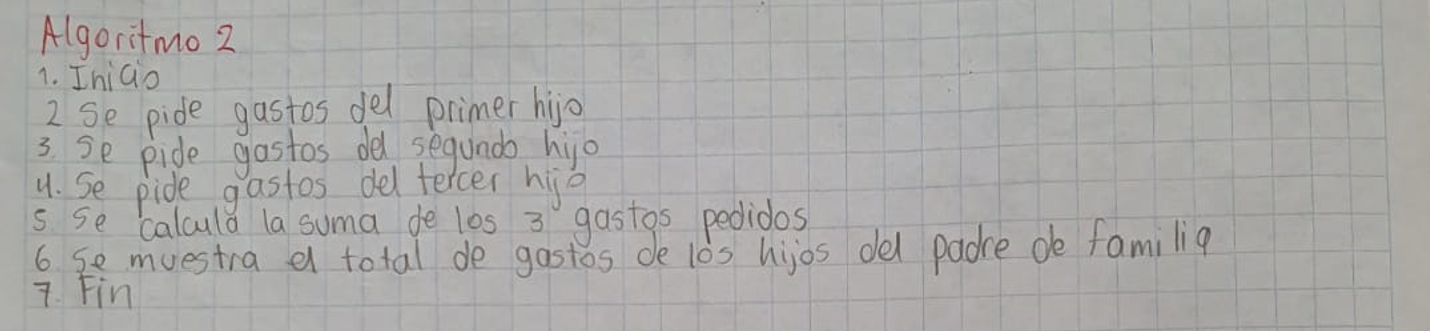 Algoritmo 2
1. Inicio
2 Se pide gastos del primer hijo
3. Se pide gastos del segundo hijo
4. Se pide gastos del tercer hijo
5 Se calcula la suma de los 3 gastos pedidos
6 Se muestra el total de gastos de los hijos del padre de familia
7. Fin